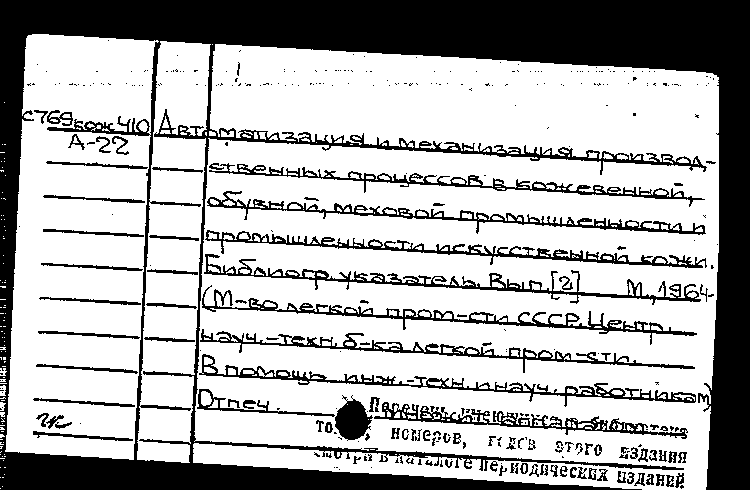 С769кож410 Автоматизация и механизация производ-
А-22
ственных процессов в кожевенной,
обувной, меховой промышленности и
промышленности искусственной кожи.
Библиогр. указатель. Вып. [2] М., 1964-
(М-во легкой пром-сти СССР. Центр.
науч.-техн. б-ка легкой пром-сти.
В помощь инж.-техн. и науч. работникам)
Отпеч.
Перечень имеющихся в библиотеке
то , номеров, годов этого издания
смотри в каталоге периодических изданий